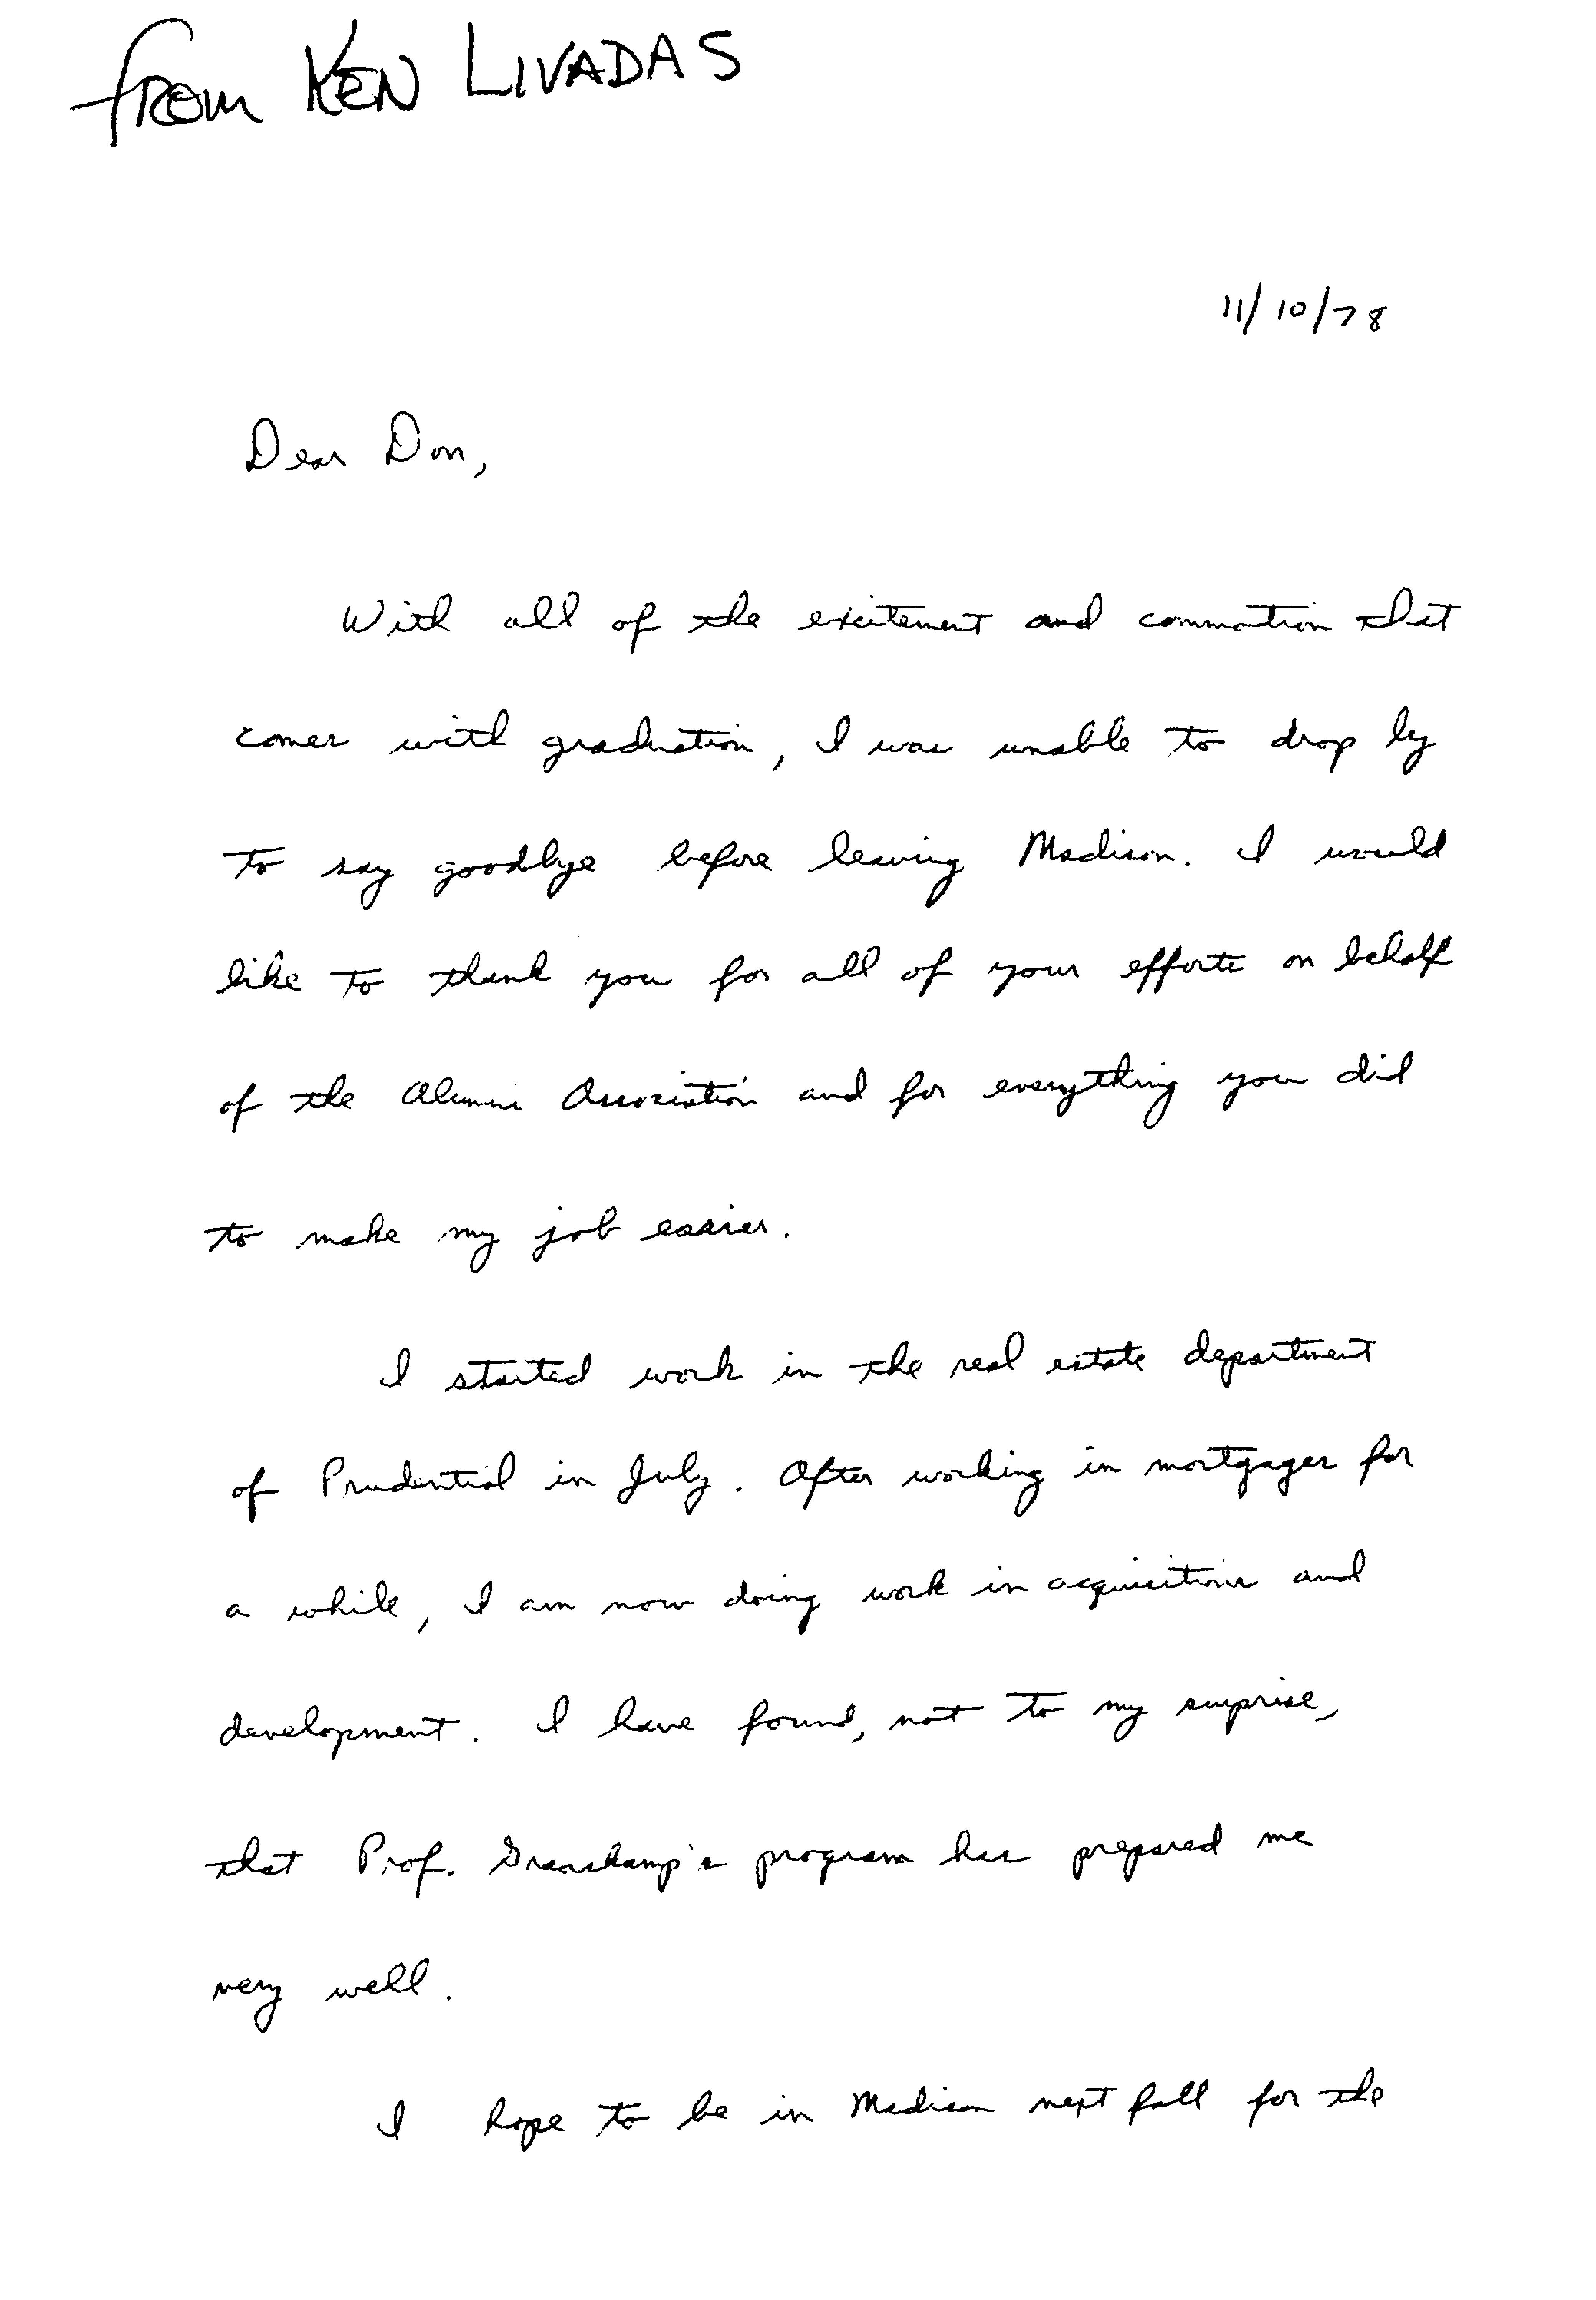 from KEN LIVADAS
11/10/78
Dear Don,
With all of the excitement and commotion that
comes with graduation, I was unable to drop by
to say goodbye before leaving Madison. I would
like to thank you for all of your efforts on behalf
of the Alumni Association and for everything you did
to make my job easier.
I started work in the real estate department
of Prudential in July. After working in mortgages for
a while, I am now doing work in acquisitions and
development. I have found, not to my surprise,
that Prof. Graaskamp's program has prepared me
very well.
I hope to be in Madison next fall for the